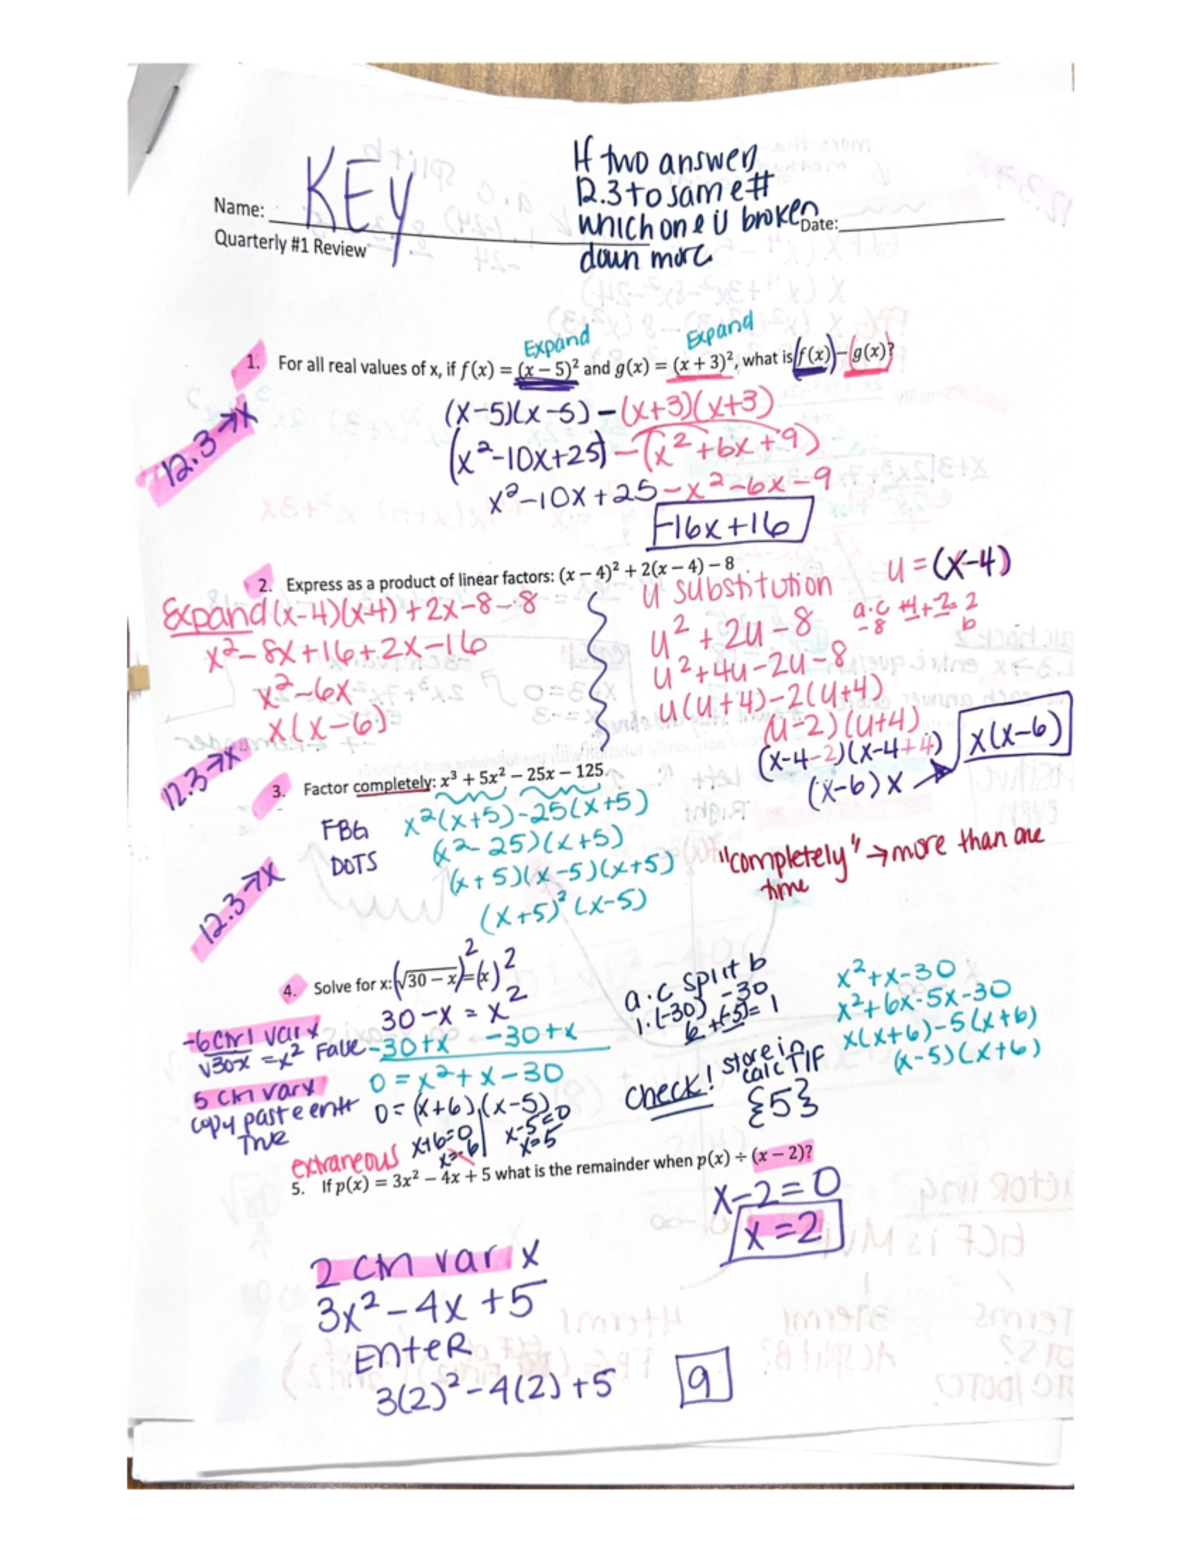 KEY
If two answers
12.3 to same #
which one is broken
down more
Name:
Date:
Quarterly #1 Review
Expand
Expand
1. For all real values of x, if f(x) = (x − 5)² and g(x) = (x + 3)², what is f(x) − g(x)?
12.3→x
(x-5)(x-5) - (x+3)(x+3)
(x²-10x+25) - (x²+6x+9)
x²-10x+25-x²-6x-9
-16x+16
2. Express as a product of linear factors: (x − 4)² + 2(x − 4) − 8
Expand (x-4)(x-4)+2x-8-8
x²-8x+16+2x-16
x²-6x
x(x-6)
u substitution
u=(x-4)
u²+2u-8
a·c +4+-2=2
-8 b
u²+4u-2u-8
u(u+4)-2(u+4)
(u-2)(u+4)
(x-4-2)(x-4+4)
(x-6)x
x(x-6)
12.3→x
3. Factor completely: x³ + 5x² − 25x − 125
FBG
DOTS
x²(x+5)-25(x+5)
(x²-25)(x+5)
(x+5)(x-5)(x+5)
(x+5)²(x-5)
"completely" → more than one
time
12.3→x
4. Solve for x: (√30 − x)² = (x)²
30-x = x²
-30+x -30+x
0 = x²+x-30
0=(x+6)(x-5)
x+6=0 x-5=0
x=-6 x=5
-6 ctrl var x
√30-x = x² False
5 ctrl var x
copy paste entr
True
extraneous
a·c split b
1·(-30) -30
6+(-5)=1
check! store in
calc T/F
{5}
x²+x-30
x²+6x-5x-30
x(x+6)-5(x+6)
(x-5)(x+6)
5. If p(x) = 3x² − 4x + 5 what is the remainder when p(x) ÷ (x − 2)?
x-2=0
x=2
2 ctrl var x
3x²-4x+5
Enter
3(2)²-4(2)+5
9